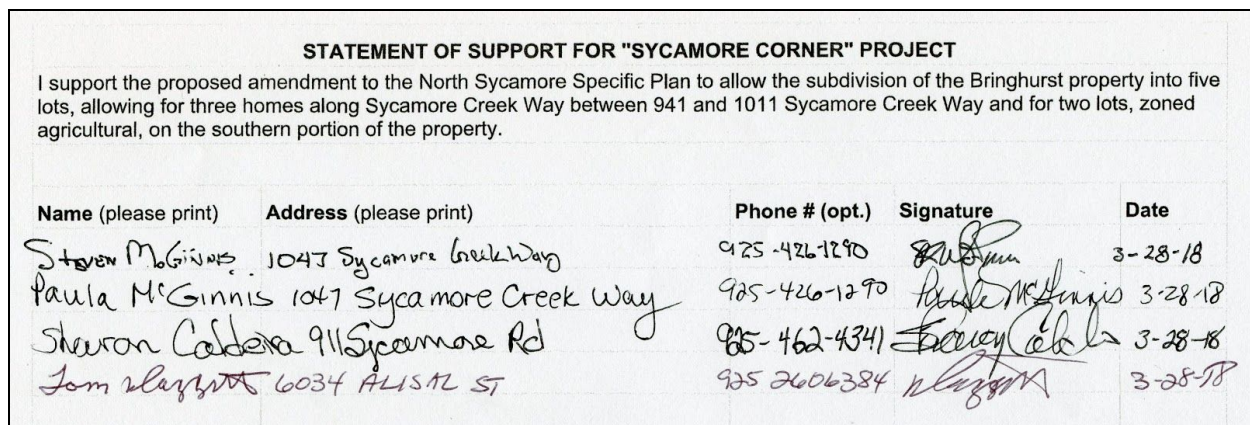 STATEMENT OF SUPPORT FOR "SYCAMORE CORNER" PROJECT
I support the proposed amendment to the North Sycamore Specific Plan to allow the subdivision of the Bringhurst property into five
lots, allowing for three homes along Sycamore Creek Way between 941 and 1011 Sycamore Creek Way and for two lots, zoned
agricultural, on the southern portion of the property.
Name (please print) Address (please print) Phone # (opt.) Signature Date
Steven McGinnis 1047 Sycamore Creek Way 925-426-1290 3-28-18
Paula McGinnis 1047 Sycamore Creek Way 925-426-1290 Paula McGinnis 3-28-18
Sharon Caldeira 911 Sycamore Rd 925-462-4341 3-28-18
Tom 6034 ALISAL ST 925 2606384 3-28-18